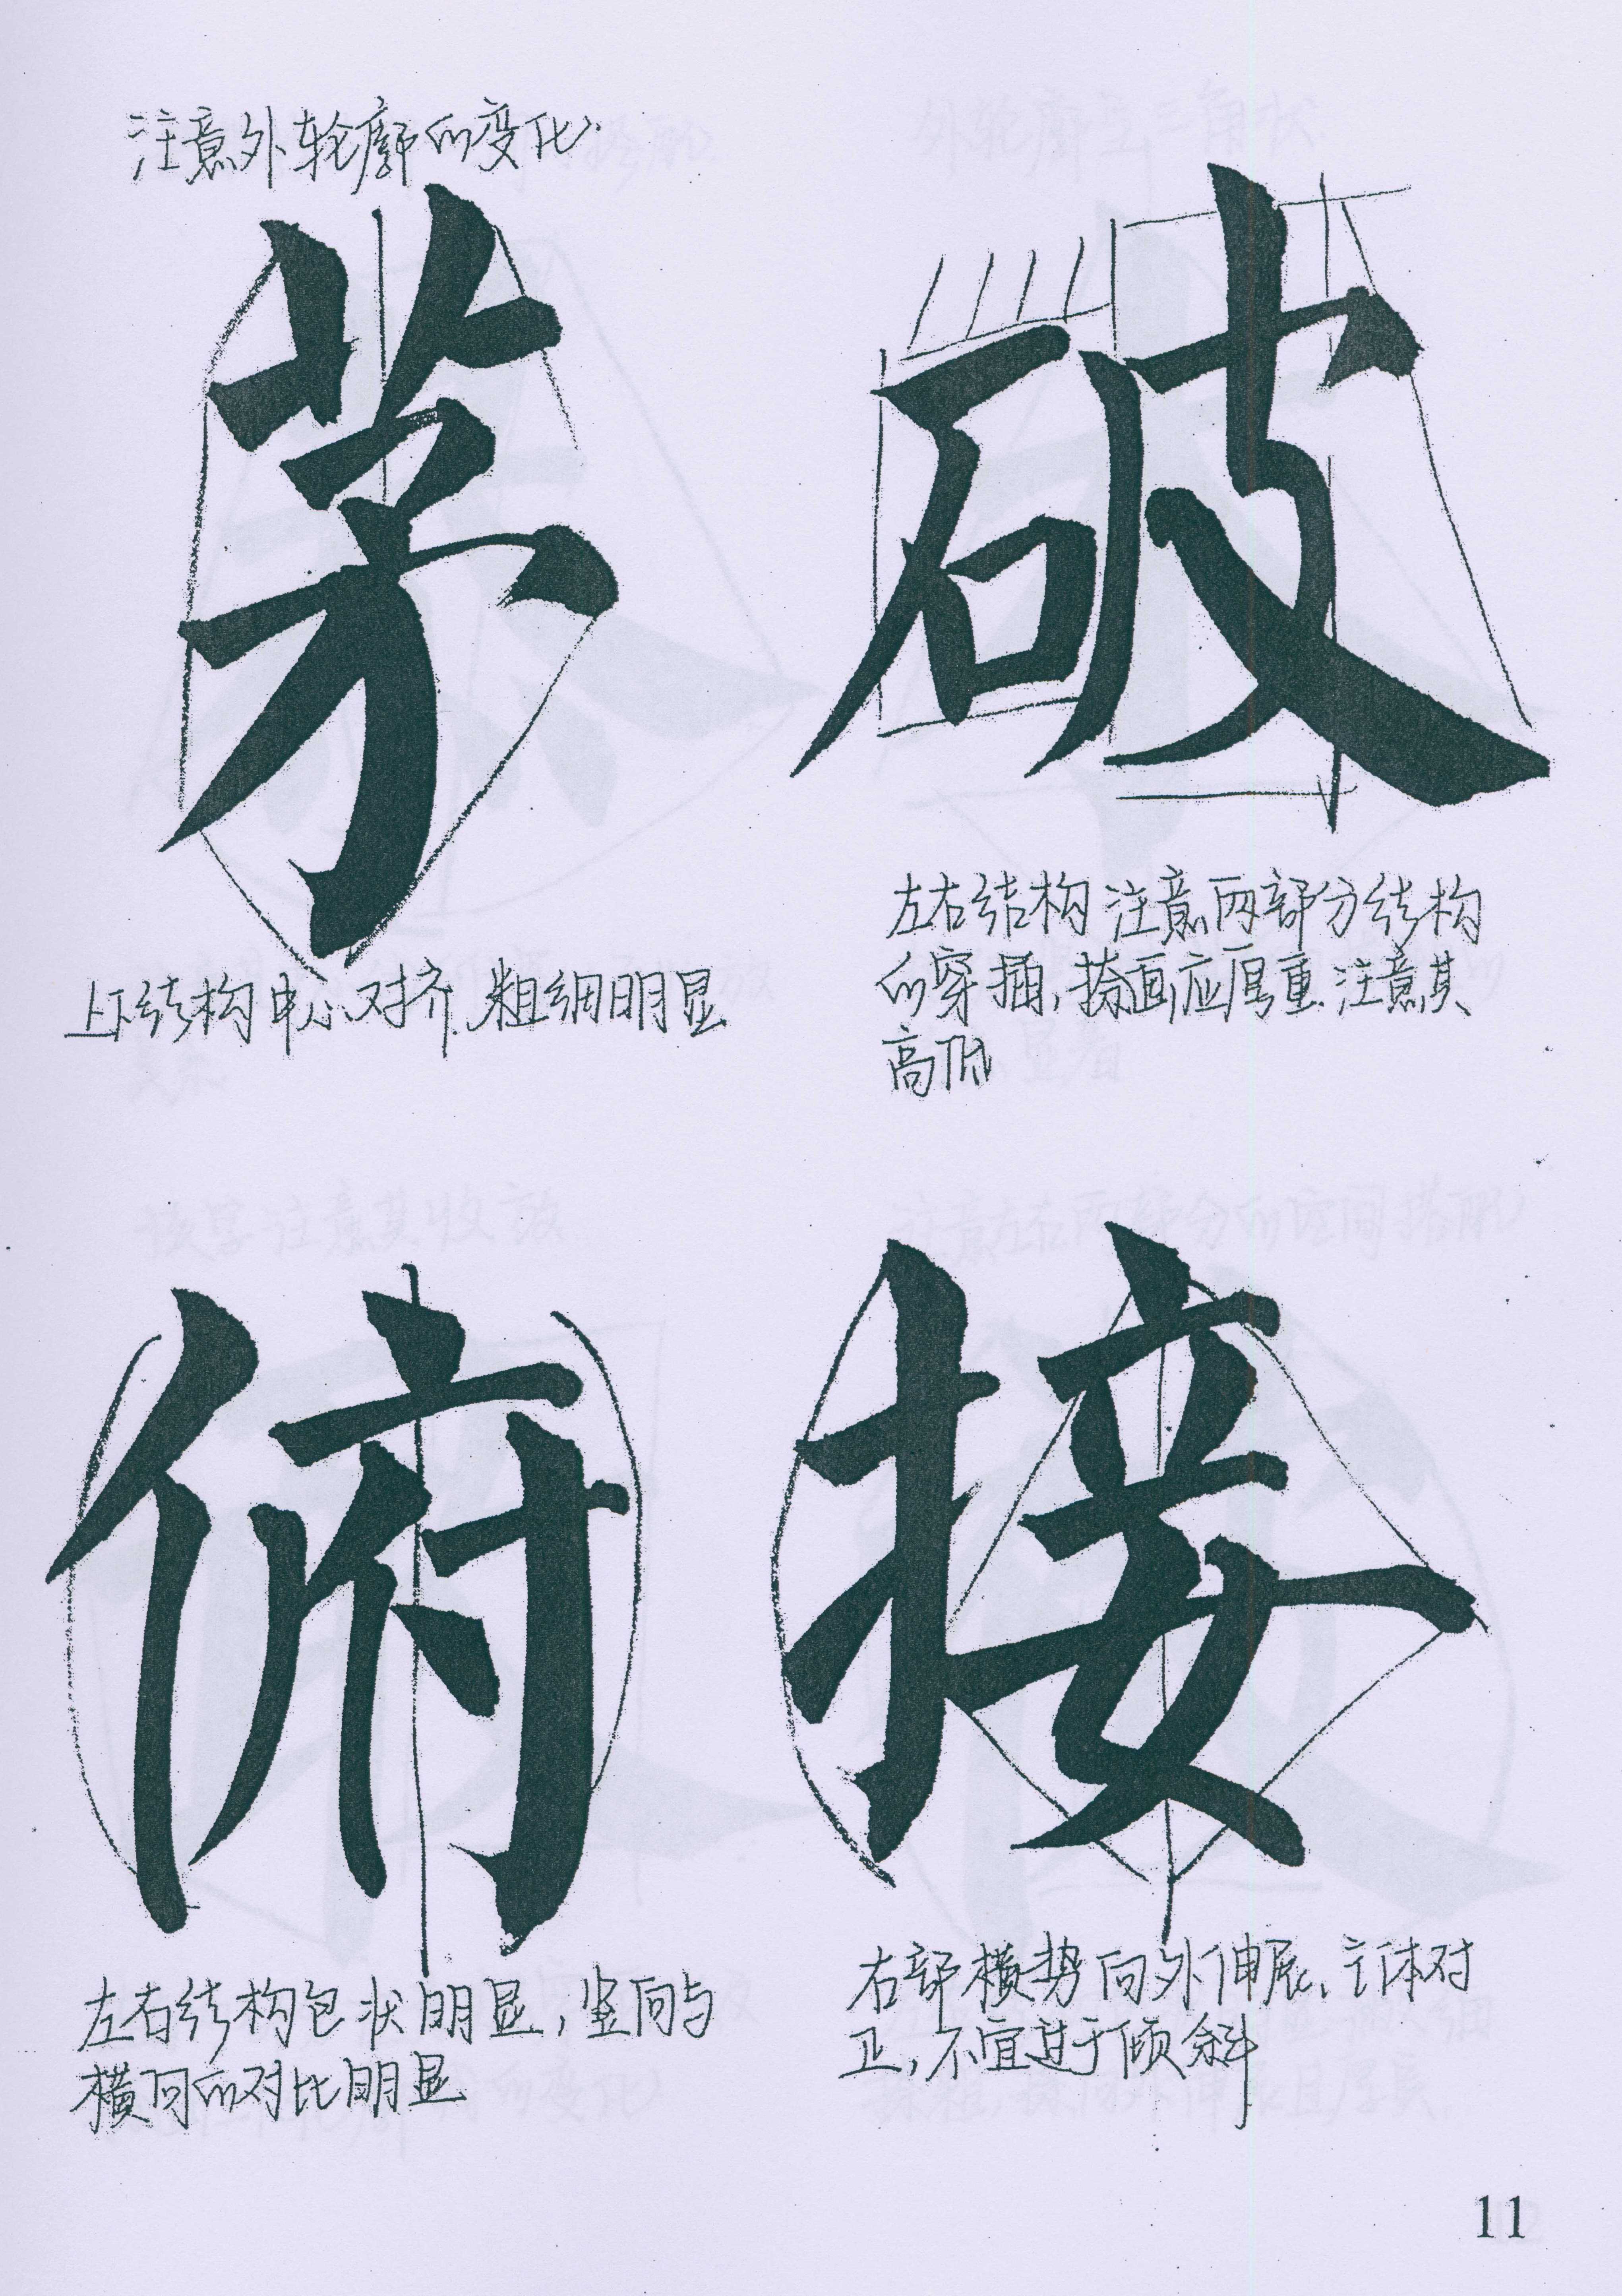 注意外轮廓的变化.
茅
破
上下结构中心对齐.粗细明显
左右结构 注意两部分结构
的穿插,捺画应厚重.注意其
高低
俯
接
左右结构包状明显,竖向与
横向的对比明显
右部横势向外伸展,主体对
正,不宜过于倾斜
11